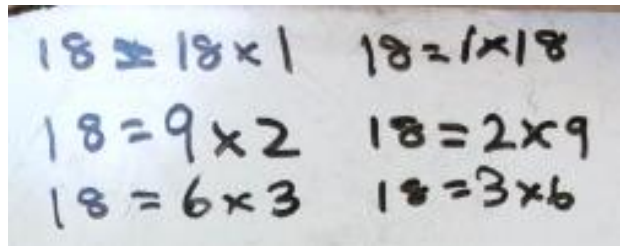 18 = 18 × 1 18 = 1 × 18
18 = 9 × 2 18 = 2 × 9
18 = 6 × 3 18 = 3 × 6